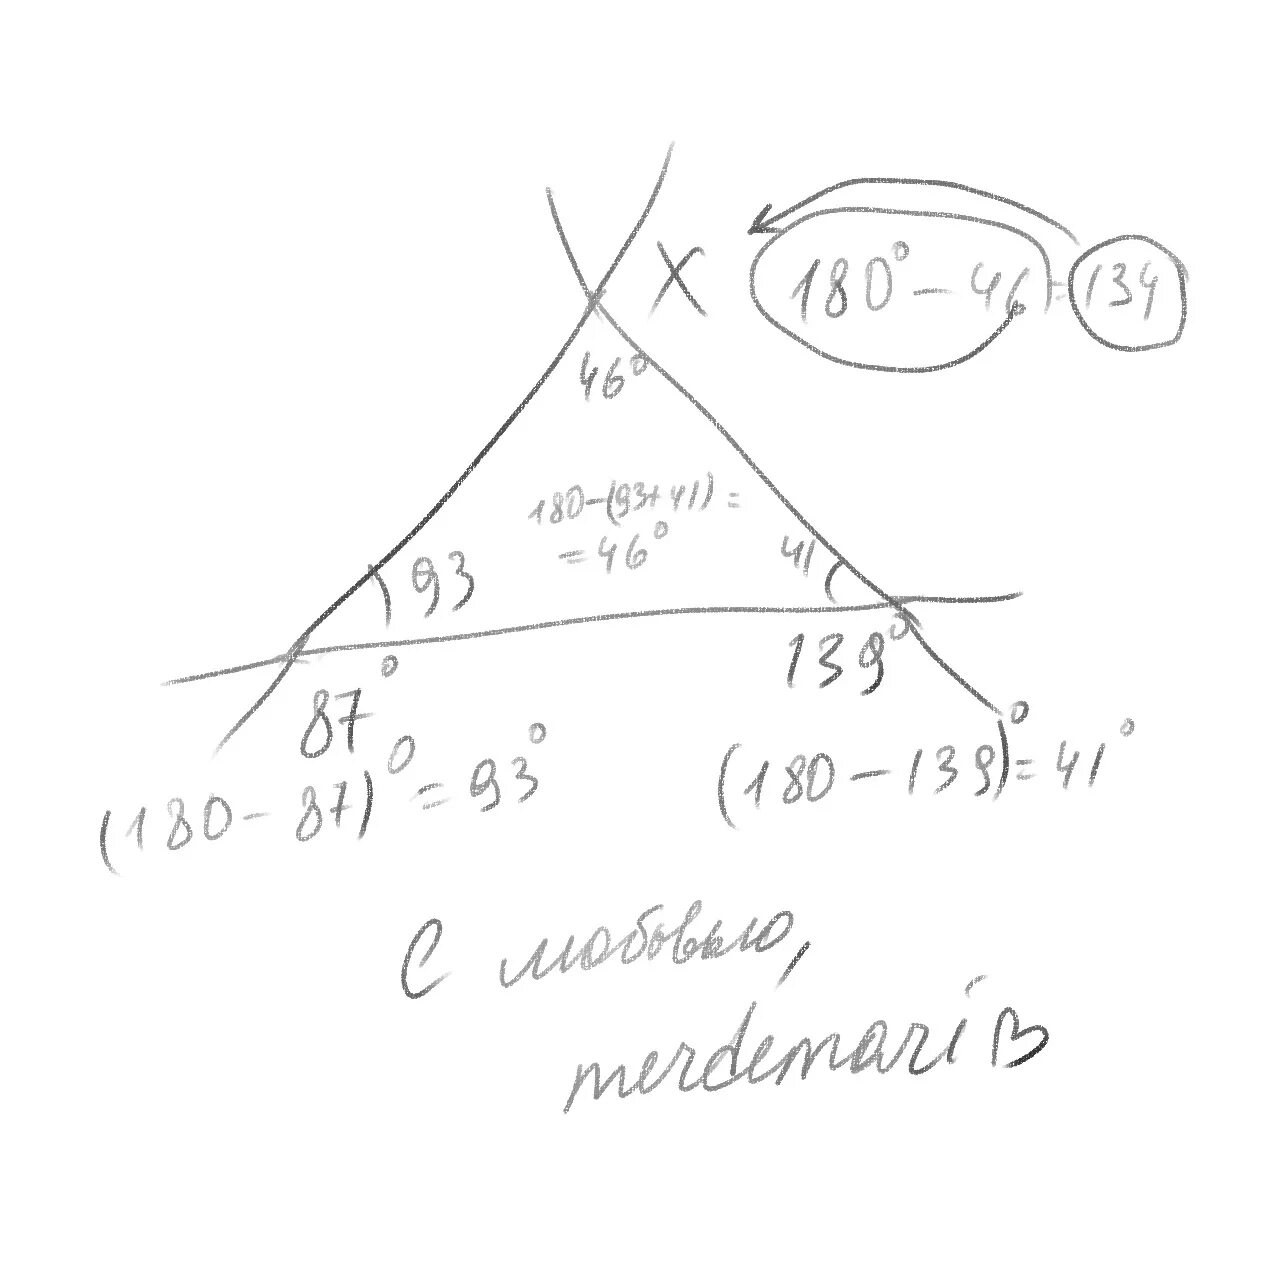 X 180° - 46 = 134
46°
180-(93+41)=
=46°
93
41
87°
139°
(180-87)° = 93°
(180-139)° = 41°
С любовью,
merdemari